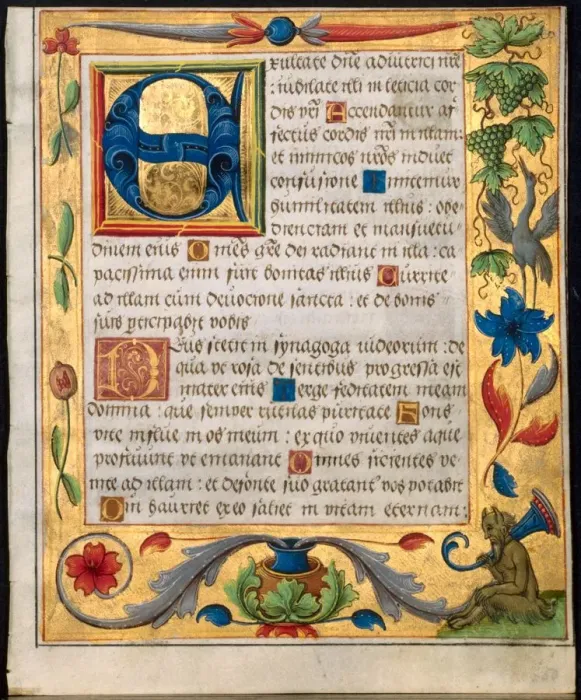 Exultate dñe adiutrici nr̃e
: iubilate illi in leticia cor-
dis vr̃i Accendantur af
fectus cordis nr̃i in illam:
et inimicos nr̃os induet
confusione Imitemur
humilitatem illius : obe-
dientiam et mansuetu-
dinem eius Omẽs gr̃e dei radiant in illa : ca
pacissima enim sunt bonitas illius Currite
ad illam cum deuocione sancta : et de bonis
suis
vobis
Deus stetit in synagoga iudeorum : de
qua vt rosa de sentibus progressa est
mater eius Terge feditatem meam
domina : que semper rutilas puritate Fons
vite influe in os meum : ex quo viuentes aque
profluunt et emanant Omnes sicientes ve-
nite ad illam : et defonte suo gratanť vos potabit
Qui hauret ex eo saliet in vitam eternam :